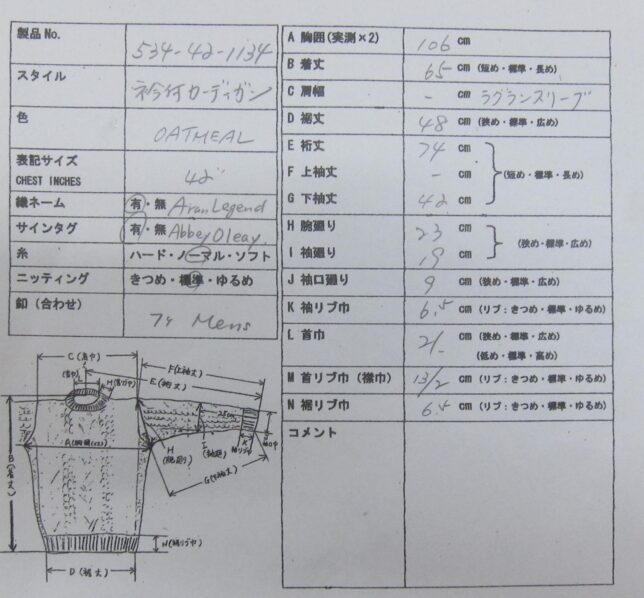 製品No.
534-42-1134
スタイル
衿付カーディガン
色
OATMEAL
表記サイズ
CHEST INCHES
42"
織ネーム
有・無 Aran Legend
サインタグ
有・無 Abbey Oleay.
糸
ハード・ノーマル・ソフト
ニッティング
きつめ・標準・ゆるめ
釦（合わせ）
7ケ Mens
A 胸囲(実測×2) 106 cm
B 着丈 65 cm (短め・標準・長め)
C 肩幅 - cm ラグランスリーブ
D 裾丈 48 cm (狭め・標準・広め)
E 裄丈 74 cm
F 上袖丈 - cm (短め・標準・長め)
G 下袖丈 42 cm
H 腕廻り 23 cm
(狭め・標準・広め)
I 袖廻り 19 cm
J 袖口廻り 9 cm (狭め・標準・広め)
K 袖リブ巾 6.5 cm (リブ：きつめ・標準・ゆるめ)
L 首巾 21- cm (狭め・標準・広め)
(低め・標準・高め)
M 首リブ巾（襟巾） 13/2 cm (リブ：きつめ・標準・ゆるめ)
N 裾リブ巾 6.5 cm (リブ：きつめ・標準・ゆるめ)
コメント
C(肩巾)
F(上袖丈)
E(裄丈)
L
(首巾)
M(首リブ巾)
B(着丈)
A(胸囲(×2))
H
(腕廻り)
I
(袖廻)
K
袖リブ巾
G(下袖丈)
N(裾リブ巾)
D(裾丈)